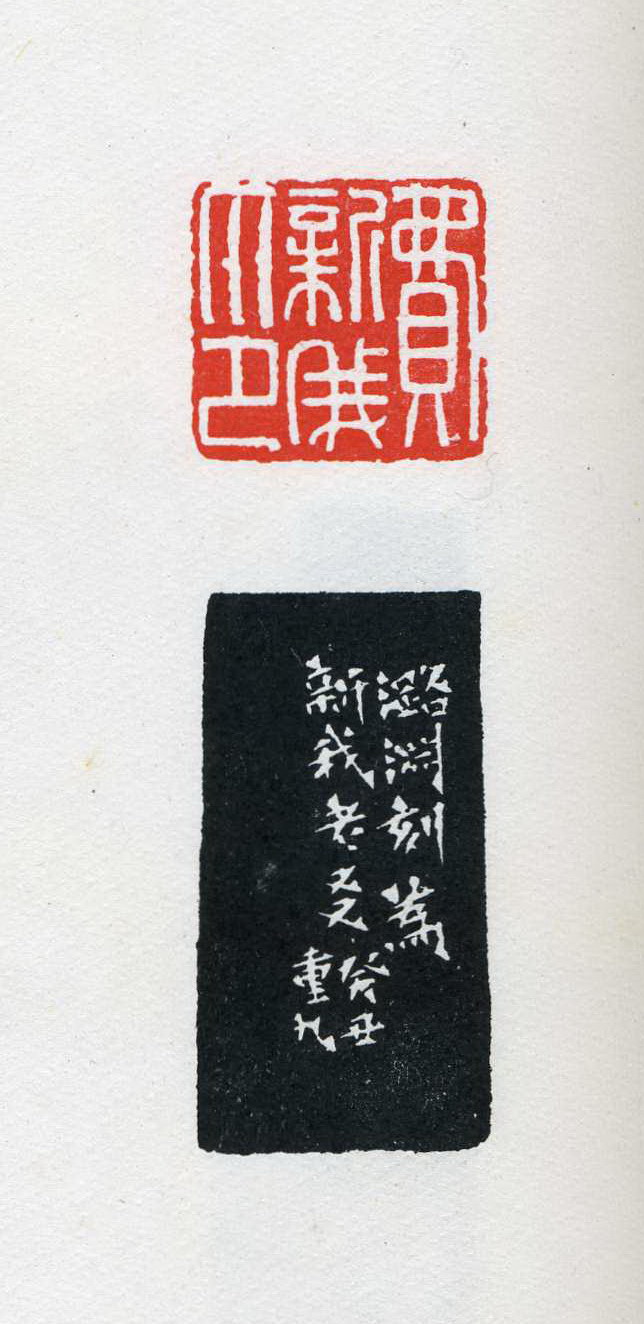 費新我印
潞淵刻為
新我老友
癸丑
重九